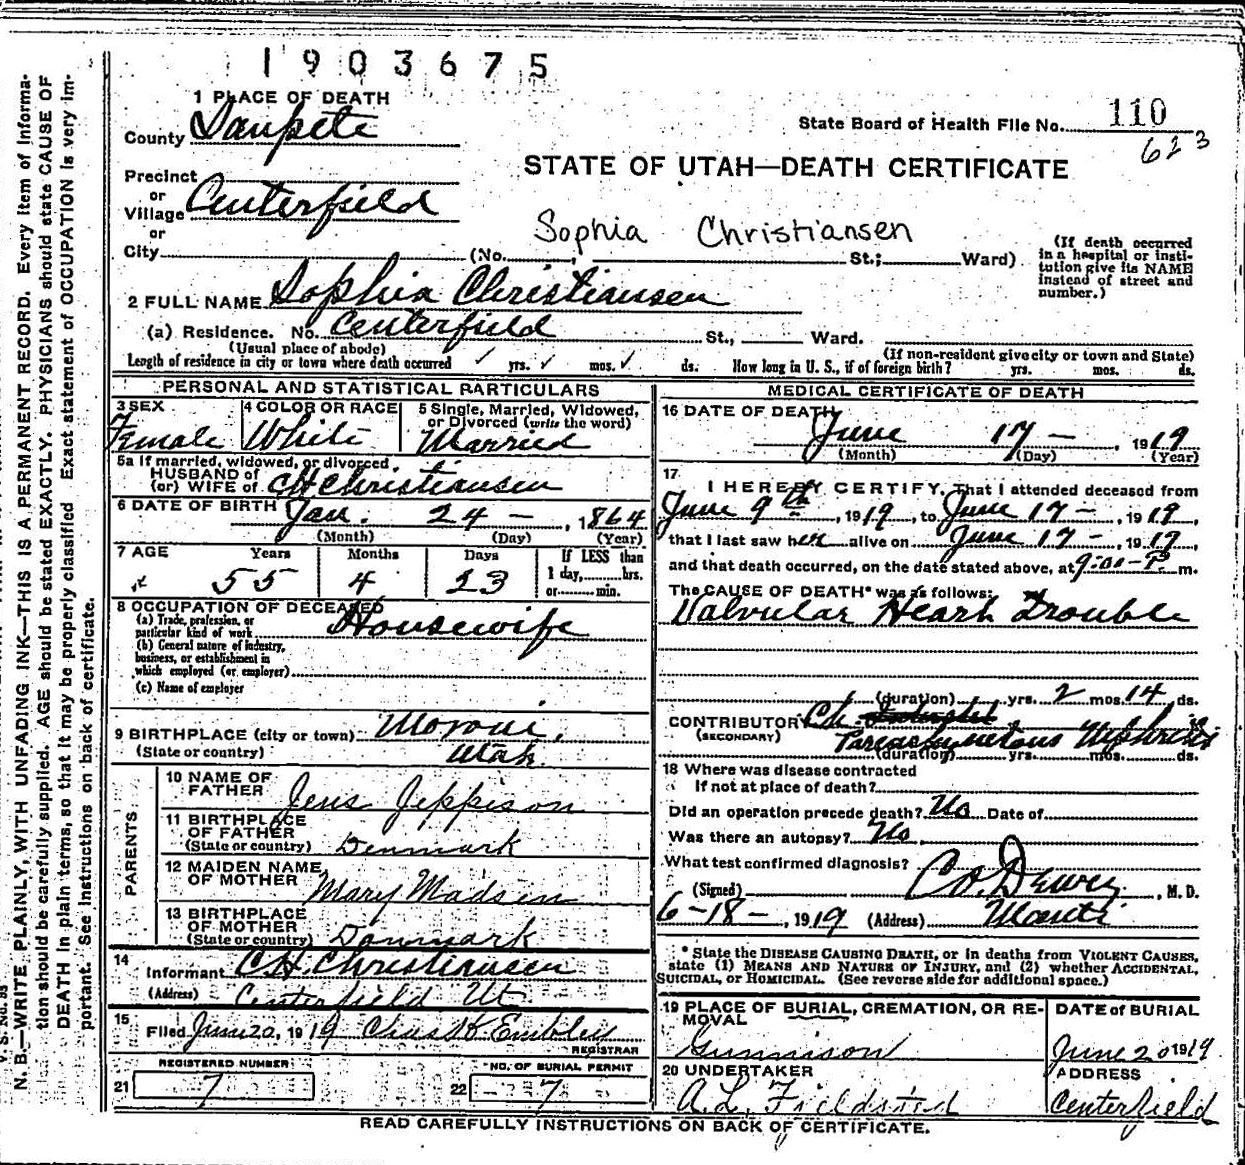 1903675
1 PLACE OF DEATH
County Sanpete
State Board of Health File No. 110
623
STATE OF UTAH—DEATH CERTIFICATE
Precinct
or
Village Centerfield
or
City (No. Sophia Christiansen St.; Ward)
(If death occurred in a hospital or insti-
tution give its NAME
instead of street and
number.)
2 FULL NAME Sophia Christiansen
(a) Residence. No. Centerfield St., Ward.
(Usual place of abode) (If non-resident give city or town and State)
Length of residence in city or town where death occurred ✓ yrs. ✓ mos. ✓ ds. How long in U. S., if of foreign birth? yrs. mos. ds.
PERSONAL AND STATISTICAL PARTICULARS
3 SEX 4 COLOR OR RACE 5 Single, Married, Widowed,
or Divorced (write the word)
Female White Married
5a If married, widowed, or divorced
HUSBAND of
(or) WIFE of CH Christiansen
6 DATE OF BIRTH Jan. 24 – , 1864
(Month) (Day) (Year)
7 AGE Years Months Days If LESS than
1 day, hrs.
or min.
55 4 23
8 OCCUPATION OF DECEASED
(a) Trade, profession, or
particular kind of work Housewife
(b) General nature of industry,
business, or establishment in
which employed (or employer)
(c) Name of employer
9 BIRTHPLACE (city or town) Moroni,
(State or country) Utah
PARENTS
10 NAME OF
FATHER Jens Jeppison
11 BIRTHPLACE
OF FATHER
(State or country) Denmark
12 MAIDEN NAME
OF MOTHER Mary Madsen
13 BIRTHPLACE
OF MOTHER
(State or country) Danmark
14
Informant CH Christiansen
(Address) Centerfield Ut
15
Filed June 20, 1919 Chas K Embley
REGISTRAR
REGISTERED NUMBER NO. OF BURIAL PERMIT
21 7 22 7
MEDICAL CERTIFICATE OF DEATH
16 DATE OF DEATH
June 17 – 1919
(Month) (Day) (Year)
17
I HEREBY CERTIFY, That I attended deceased from
June 9th, 1919, to June 17 – , 1919,
that I last saw her alive on June 17 – , 1919,
and that death occurred, on the date stated above, at 9:00 – P. m.
The CAUSE OF DEATH* was as follows:
Valvular Heart Trouble
(duration) yrs. 2 mos. 14 ds.
CONTRIBUTORY Ch.
(SECONDARY) Parenchymetous Nephritis
(duration) yrs. mos. ds.
18 Where was disease contracted
If not at place of death?
Did an operation precede death? No Date of
Was there an autopsy? No
What test confirmed diagnosis?
(Signed) Dewey, M. D.
6–18–, 1919 (Address) Manti
* State the DISEASE CAUSING DEATH, or in deaths from VIOLENT CAUSES,
state (1) MEANS AND NATURE OF INJURY, and (2) whether ACCIDENTAL,
SUICIDAL, or HOMICIDAL. (See reverse side for additional space.)
19 PLACE OF BURIAL, CREMATION, OR RE-
MOVAL
Gunnison
DATE of BURIAL
June 20 1919
20 UNDERTAKER
A. L. Fieldsted
ADDRESS
Centerfield
READ CAREFULLY INSTRUCTIONS ON BACK OF CERTIFICATE.
N. B.—WRITE PLAINLY, WITH UNFADING INK—THIS IS A PERMANENT RECORD. Every item of informa-
tion should be carefully supplied. AGE should be stated EXACTLY. PHYSICIANS should state CAUSE OF
DEATH in plain terms, so that it may be properly classified. Exact statement of OCCUPATION is very im-
portant. See instructions on back of certificate.